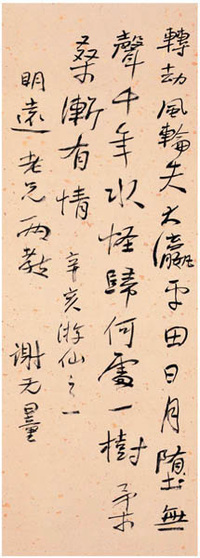 轉劫風輪失大瀛平田日月墮無
聲千年水怪歸何處一樹柔
桑漸有情 辛亥游仙之一
明遠老兄兩教 謝无量